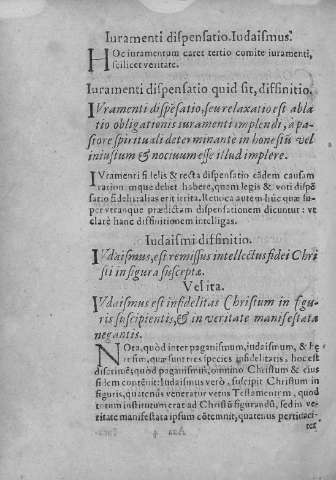 Iuramenti dispensatio. Iudaismus.
HOc iuramentum caret tertio comite iuramenti,
scilicet veritate.
Iuramenti dispensatio quid sit, diffinitio.
IVramenti dispēsatio, seu relaxatio est abla
tio obligationis iuramenti implendi, a pa-
store spirituali determinante in honestū vel
iniustum & nociuum esse illud implere.
IVramenti fidelis & recta dispensatio eādem causam
rationemque debet habere, quam legis & voti dispē
satio fidelis: alias erit irrita. Reuoca autem huc quæ su-
per vtranque prædictam dispensationem dicuntur: vt
clarè hanc diffinitionem intelligas.
Iudaismi diffinitio.
IVdaismus, est remissus intellectus fidei Chri
sti in figura susceptæ.
Vel ita.
IVdaismus est infidelitas Christum in figu-
ris suscipientis, & in veritate manifestatæ
negantis.
NOta, quòd inter paganismum, iudaismum, & hę
resim, quæ sunt tres species infidelitatis, hoc est
discrimē: quòd paganismus, omnino Christum & eius
fidem contēnit: Iudaismus verò, suscipit Christum in
figuris, quatenus veneratur vetus Testamentum, quod
totum institutum erat ad Christū figurandū, sed in ve-
ritate manifestata ipsum cōtemnit, quatenus pertinaci-
ter